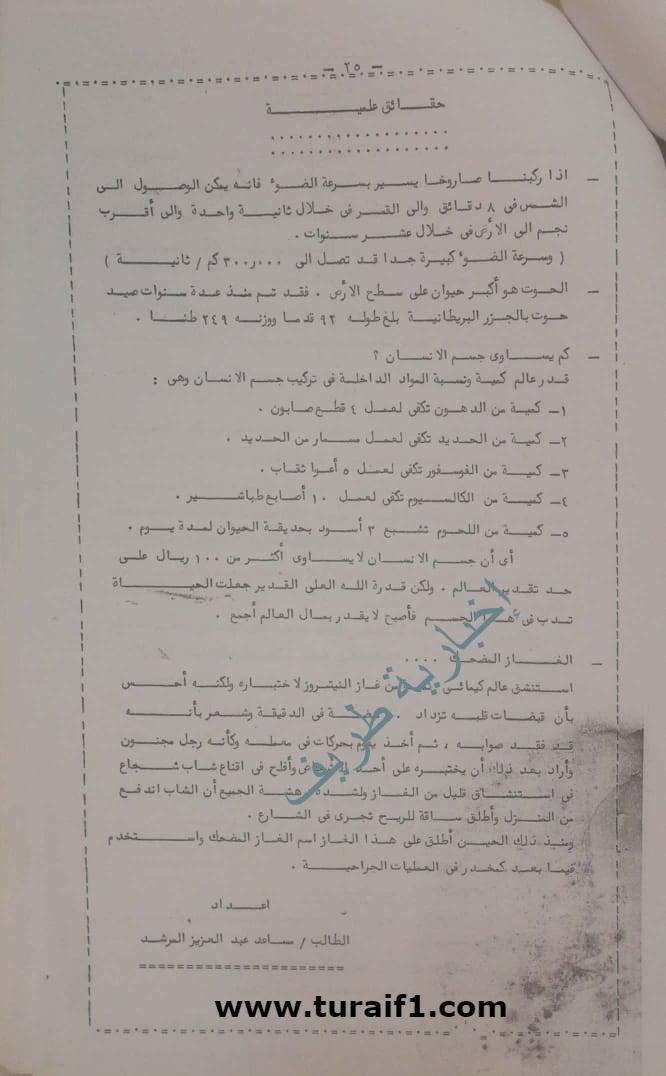 - ٢٥ -
حقائق علمية
- اذا ركبنا صاروخا يسير بسرعة الضوء فانه يمكن الوصول الى
الشمس فى ٨ دقائق والى القمر فى خلال ثانية واحدة والى أقرب
نجم الى الأرض فى خلال عشر سنوات .
( وسرعة الضوء كبيرة جدا قد تصل الى ٣٠٠ر٠٠٠ كم / ثانية )
- الحوت هو أكبر حيوان على سطح الأرض . فقد تم منذ عدة سنوات صيد
حوت بالجزر البريطانية بلغ طوله ٩٢ قدما ووزنه ٢٤٩ طنا .
- كم يساوى جسم الانسان ؟
قدر عالم كمية ونسبة المواد الداخلة فى تركيب جسم الانسان وهى :
١- كمية من الدهون تكفى لعمل ٤ قطع صابون .
٢- كمية من الحديد تكفى لعمل مسمار من الحديد .
٣- كمية من الفوسفور تكفى لعمل ٥ أعوا ثقاب .
٤- كمية من الكالسيوم تكفى لعمل ١٠ أصابع طباشير .
٥- كمية من اللحوم تشبع ٣ أسود بحديقة الحيوان لمدة يوم .
أى أن جسم الانسان لا يساوى أكثر من ١٠٠ ريال على
حد تقدير العالم . ولكن قدرة الله العلى القدير جعلت الحياة
تدب فى الجسم فأصبح لا يقدر بمال العالم أجمع .
- الغاز المضحك ....
استنشق عالم كيمائى من غاز النيتروز لاختباره ولكنه أحس
بأن قبضات قلبه تزداد فى الدقيقة وشعر بأنه
قد فقد صوابه ، ثم أخذ يقوم بحركات فى معمله وكأنه رجل مجنون
وأراد بعد ذلك أن يختبره على أحد وأفلح فى اقناع شاب شجاع
فى استنشاق قليل من الغاز ولشدة دهشة الجميع أن الشاب اندفع
من المنزل وأطلق ساقة للريح تجرى فى الشارع .
ومنذ ذلك الحين أطلق على هذا الغاز اسم الغاز المضحك واستخدم
فيما بعد كمخدر فى العمليات الجراحية .
اعداد
الطالب / مساعد عبد العزيز المرشد
إخبارية طريف
www.turaif1.com